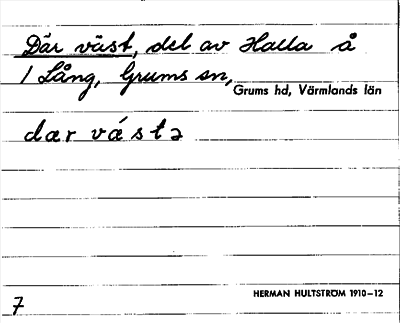 Där väst, del av Halla å
1 Lång, Grums sn,
Grums hd, Värmlands län
dær vástə
HERMAN HULTSTRÖM 1910–12
7